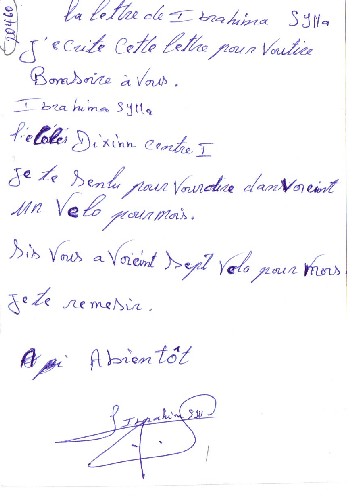 20460
la lettre de Ibrahima Sylla
j'ecrite cette lettre pour voutice
Bonsoire à vous.
Ibrahima Sylla
Dixinn centre I
je te senlu pour vourdire dan voreint
un Velo pour mois.
Sis Vous a Voréint Sept Velo pour mois
je te remesir.
Api Abientôt
Ibrahima Syll